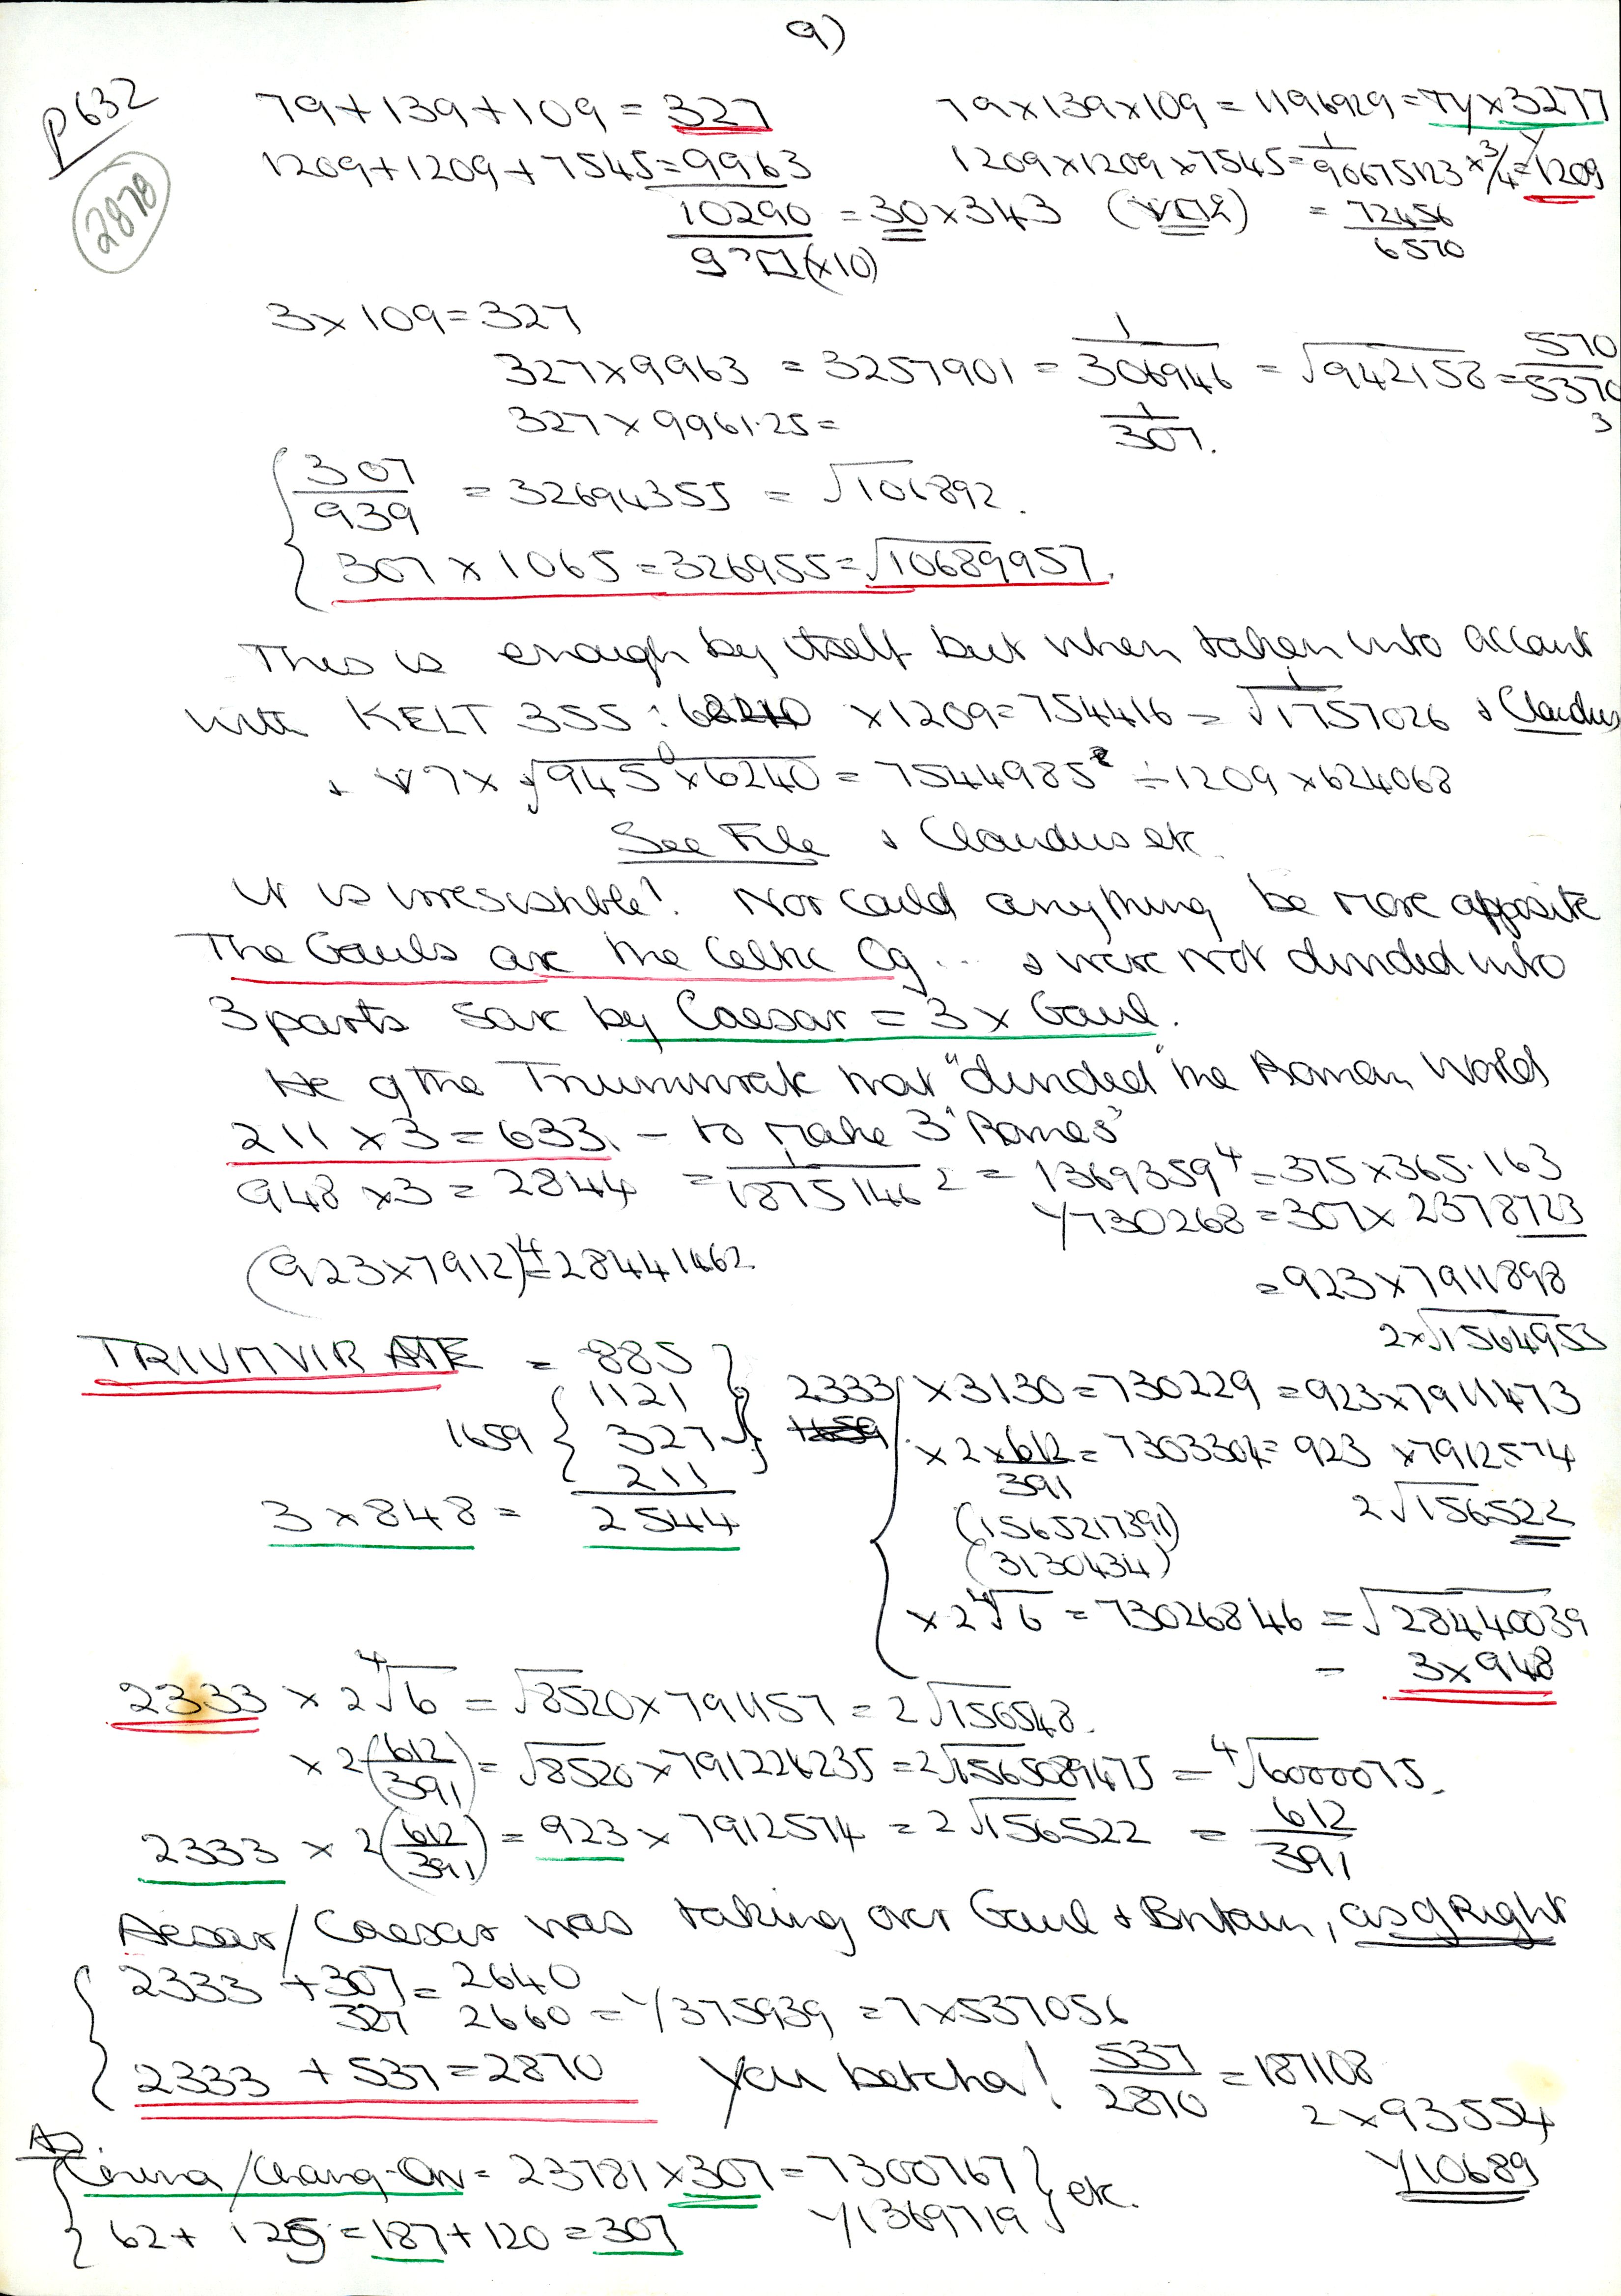 9)
P632
2878
79+139+109 = 327
79×139×109 = 1196929 = πy × 3277
1209+1209+7545=9963
1209×1209×7545 = 1/90675123 ×3/4 = 1209
10290 = 30×343 = 72456/6570
(×10)
3×109=327
327×9963 = 3257901 = 1/306946 = √942158 = 570/5370
3
327×9961.25= 1/307.
307/939 = 32694355 = √106892.
307 × 1065 = 326955 = √10689957.
This is enough by itself but when taken into account
with KELT 355 : ×1209=754416 = 1/√1757026 & Claudius
× √945×6240 = 7544985² ÷ 1209 × 624068
See File & Claudius etc.
It is irresistible! Nor could anything be more apposite
The Gauls are the Celtic Og... & were not divided into
3 parts save by Caesar = 3 × Gaul.
He of the Triumvirate that "divided" the Roman World
211 × 3 = 633. – to make 3 "Romes"
948 ×3 = 2844 = 1/1875146² = 1369359⁴ = 375×365.163
y730268 = 307× 2378723
(923×7912)⁴=28441462
= 923 × 7911898
2×√1564953
TRIUMVIRATE = 885
1121
1659 { 327
211
3 × 848 = 2544
2333 × 3130 = 730229 = 923×7911473
× 2×612/391 = 7303304 = 923 ×7912574
2√156522
(1565217391)
(3130434)
× 2 ⁴√6 = 73026846 = √28440039
= 3×948
2333 × 2 ⁴√6 = √8520 × 791157 = 2√156548.
× 2(612/391) = √8520 × 791226235 = 2√1565089475 = ⁴√6000075.
2333 × 2(612/391) = 923 × 7912574 = 2√156522 = 612/391
Aesar/Caesar was taking over Gaul & Britain, as of Right
2333 + 307 = 2640
327 2660 = y375939 = 7×537056
2333 + 537 = 2870 You betcha! 537/2870 = 187108
2×93554
y10689
AD.
China/Chang-On = 23781 × 307 = 7300767 } etc.
y1369719
62 + 125 = 187 + 120 = 307